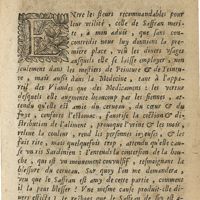 ENtre les fleurs recommandables pour
leur vtilité, celle de Saffran meri-
te, à mon aduis, que sans con-
trouerse nous luy donnions la pre-
miere place, veu les diuers vsages
ausquels elle se laisse employer, non
seulement dans les mestiers de Peinture & de Teinture
re, mais aussi dans la Medecine, tant à l'appa-
reil des Viandes que des Medicamens : les vertus
ausquels elle augmente beaucoup par ses forces, at-
tendu qu'elle est amie du cerueau, du cœur & du
foye, conforte l'estomac, fauorise la coction & di-
stribution de l'aliment, prouoque l'vrine & le reste,
colore le teint, rend les personnes ioyeuses, & les
fait rire, mais quelquefois trop, attendu qu'elle cause
vn ris Sardinien : i'entends la contorsion de la bou-
che, qui est vn mouuement conuulsif, tesmoignant
la blessure du cerueau. Sur quoy l'on me demandera
si vray que le Saffran est amy de cette partie, comment
il la peut blesser ? Vne mesme cause produit-elle di-
uers effects ? Ie responds que le Saffran de soy est